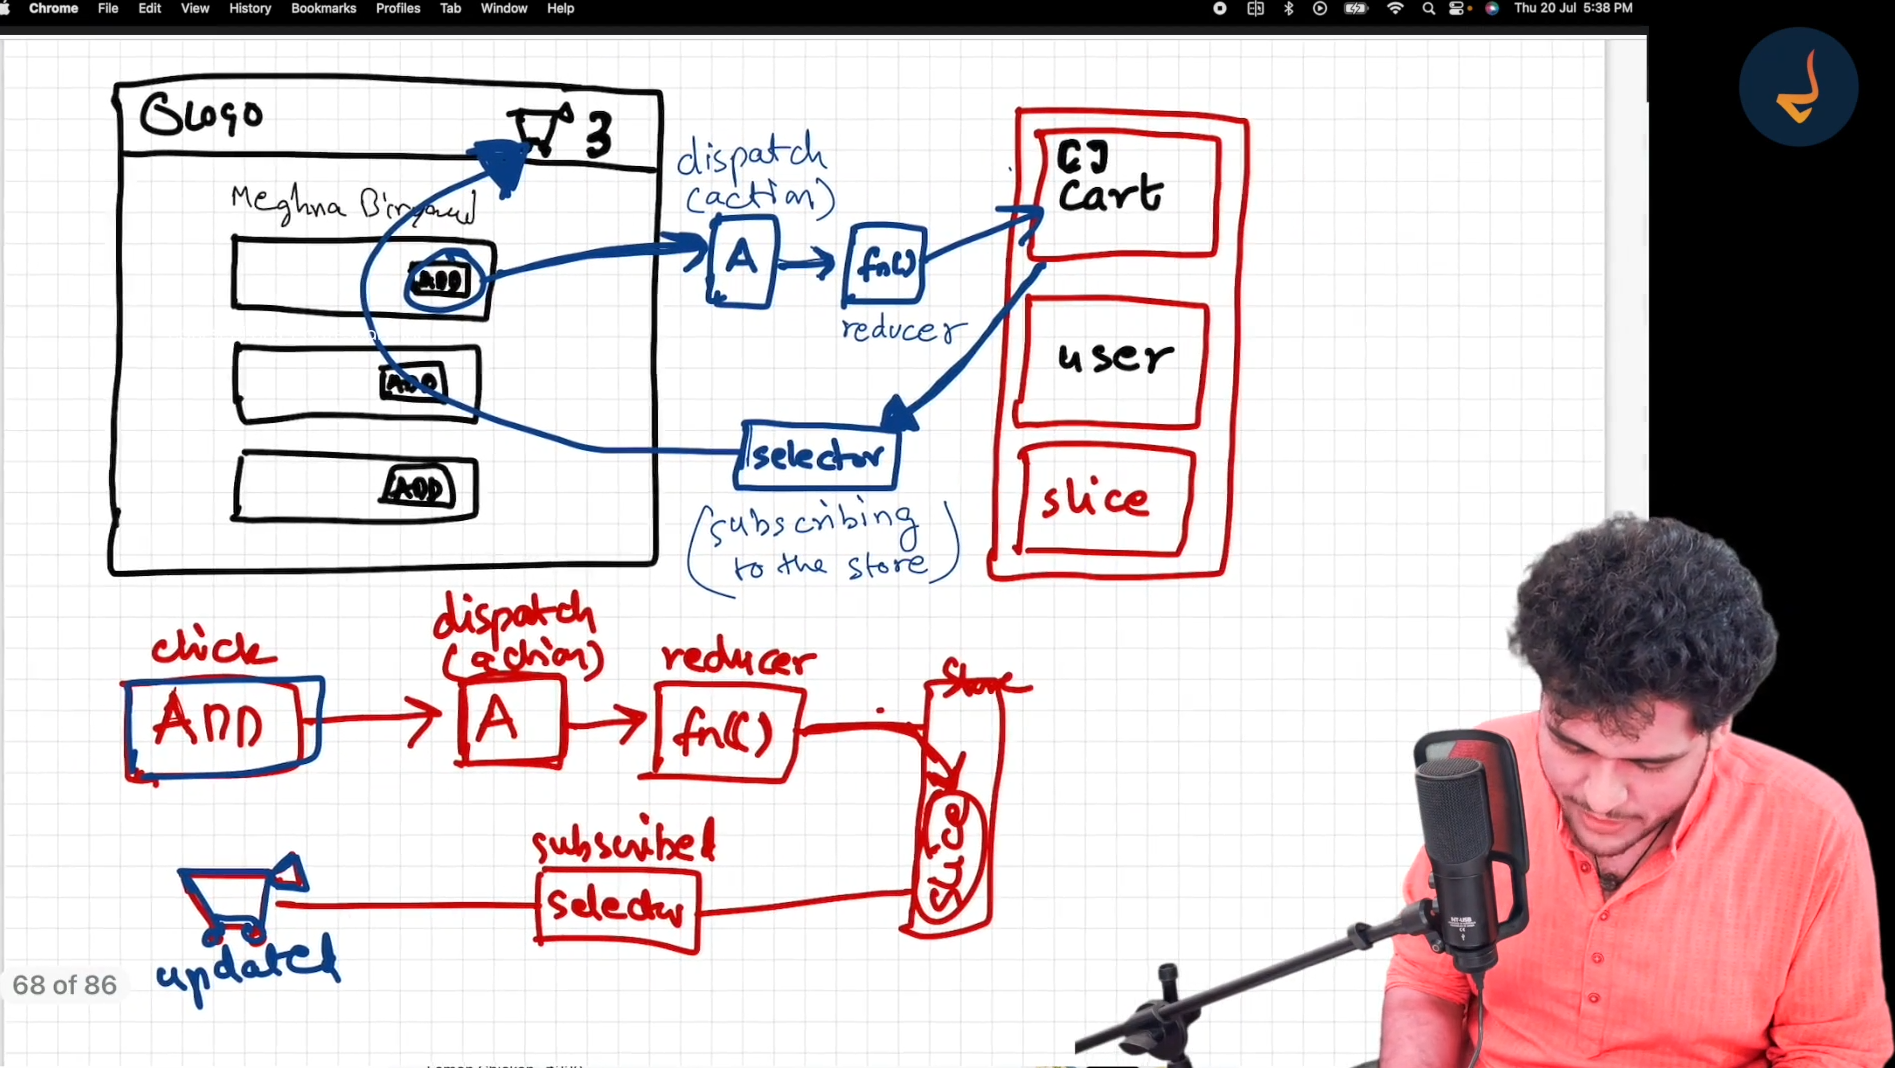 Chrome File Edit View History Bookmarks Profiles Tab Window Help
Thu 20 Jul 5:38 PM
Logo
3
Meghna
ADD
ADD
ADD
dispatch
(action)
A
fn()
reducer
selector
(subscribing
to the store)
[]
Cart
user
slice
click
ADD
dispatch
(action)
A
reducer
fn()
Store
slice
subscribed
selector
updated
68 of 86